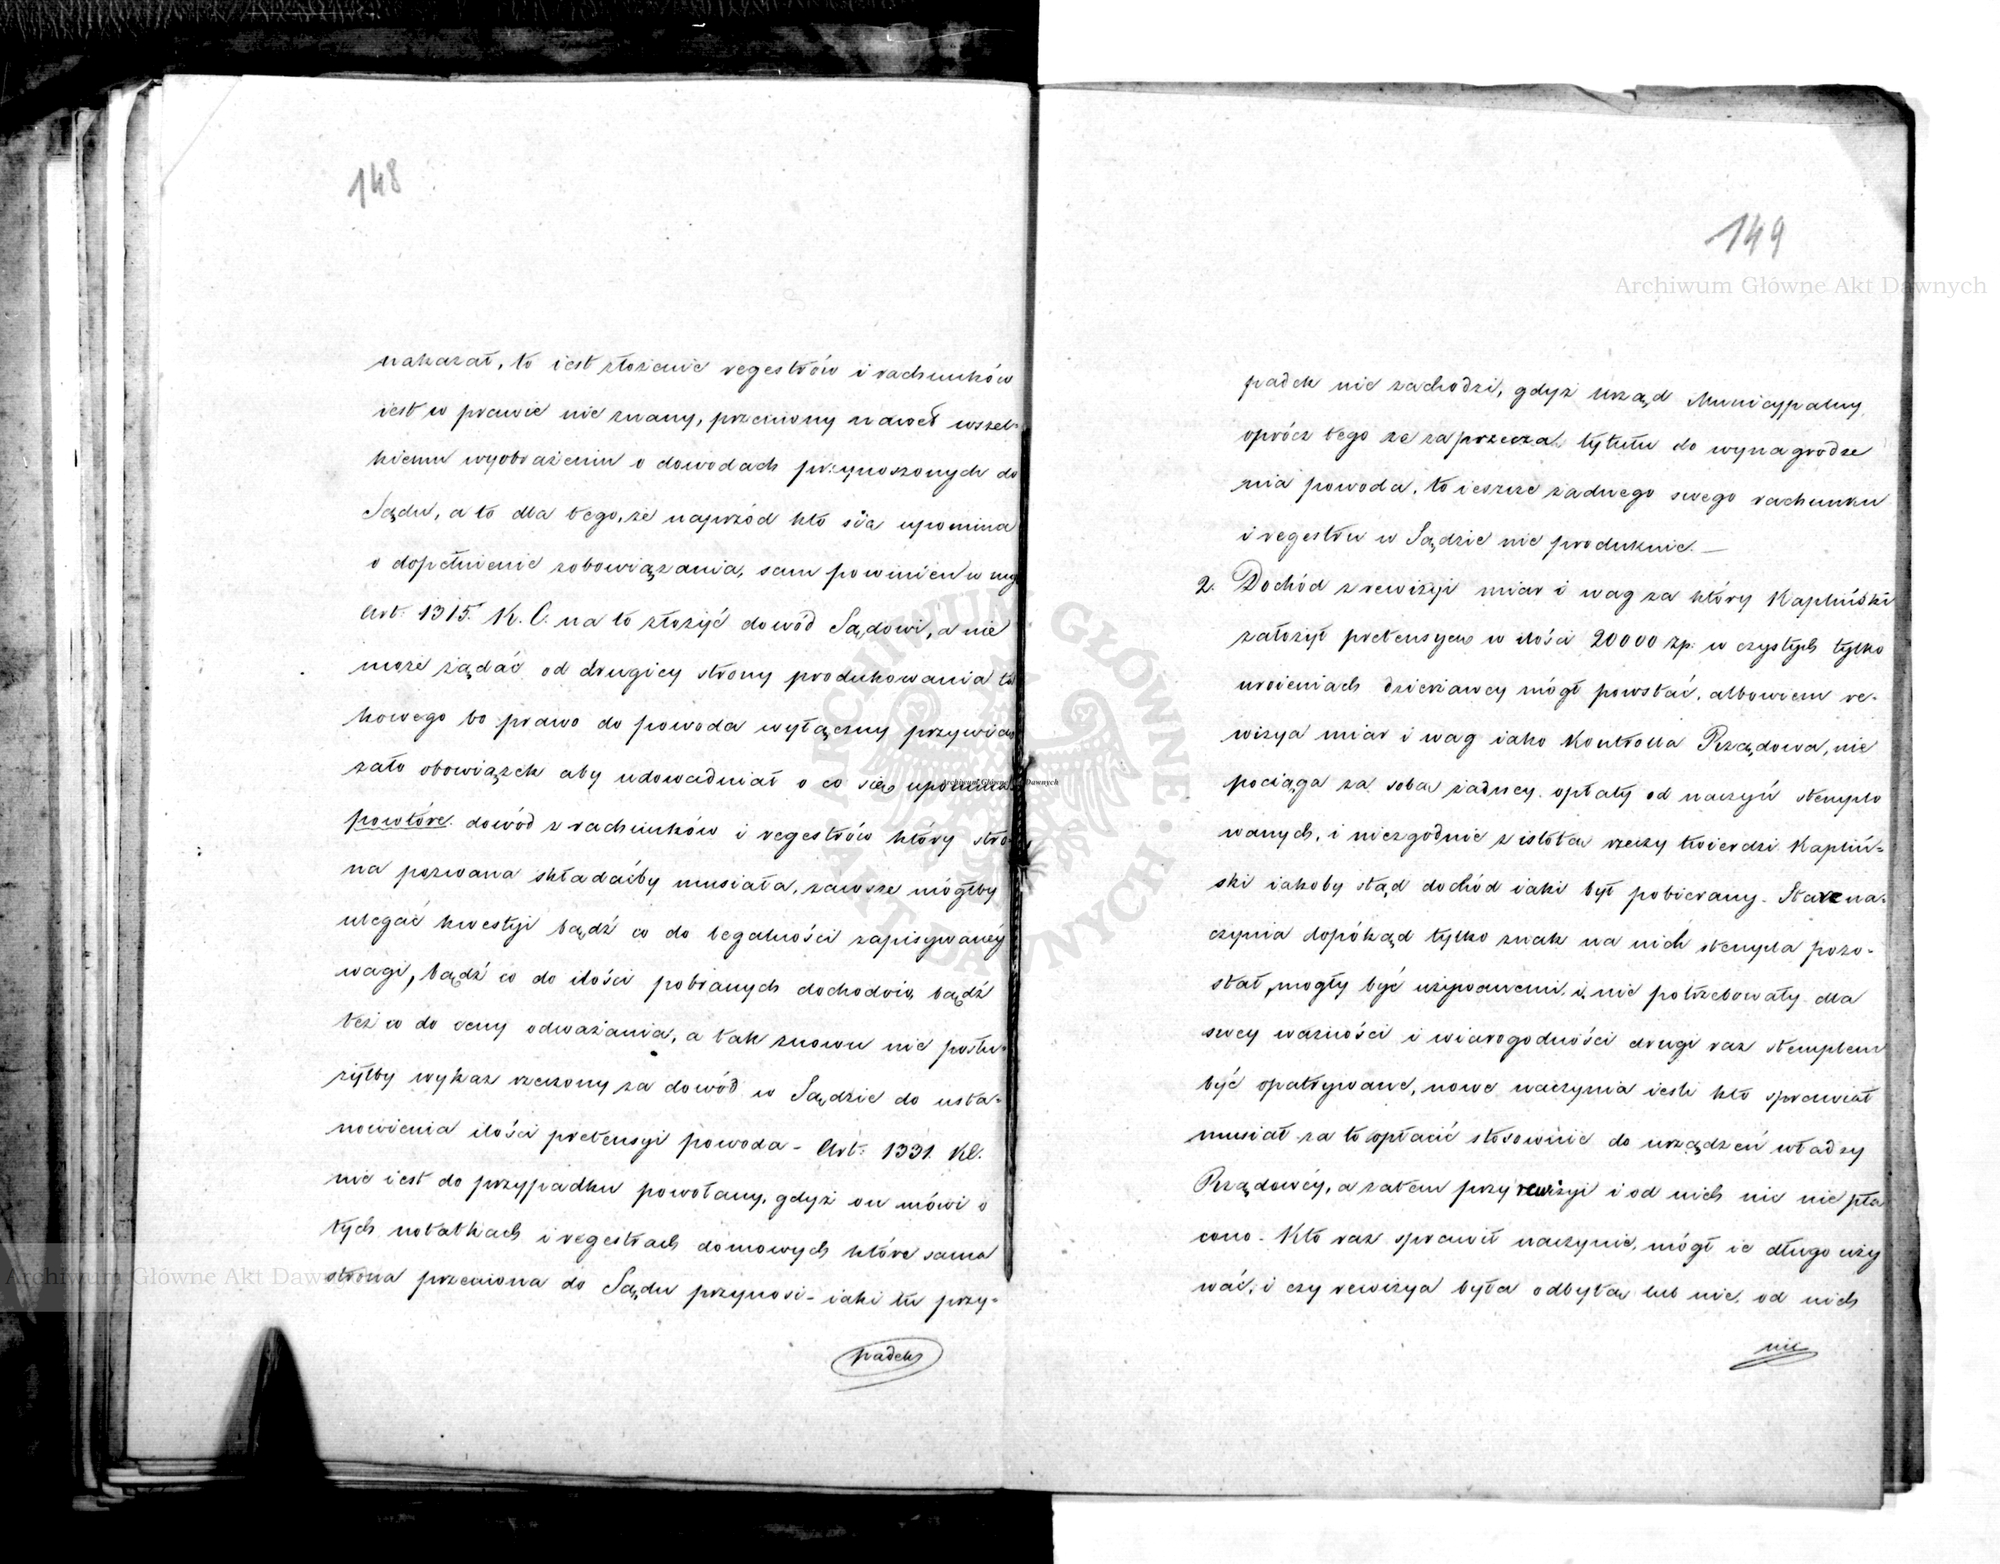 148
nakazał, to iest złożenie regestrów i rachunków
iest w prawie nie znany, przeciwny nawet wszel=
kiemu wyobrażeniu o dowodach przynoszonych do
Sądu, a to dla tego, że naprzód kto się upomina
o dopełnienie zobowiązania, sam powinien w myśl
Art. 1315. K. C. na to złożyć dowód Sądowi, a nie
może żądać od drugiey strony produkowania ta
kowego bo prawo do powoda wyłączny przywią
zało obowiązek aby udowadniał o co się upomina
powtóre. dowód z rachunków i regestrów który stro
na pozwana składaćby musiała, zawsze mógłby
ulegać kwestyi bądź co do legalności zapisywaney
wagi, bądź co do ilości pobranych dochodów, bądź
też co do ceny odważania, a tak znowu nie posłu=
żyłby wykaz rzeczony za dowód w Sądzie do usta=
nowienia ilości pretensyi powoda - Art. 1331. KC.
nie iest do przypadku powołany, gdyż on mówi o
tych notatkach i regestrach domowych które sama
strona przeciwna do Sądu przynosi - iaki tu przy=
padek
149
padek nie zachodzi, gdyż Urząd Municypalny,
oprócz tego że zaprzecza tytułu do wynagrodze
nia powoda, to ieszcze żadnego swego rachunku
i regestru w Sądzie nie produkuie. —
2. Dochód z rewizyi miar i wag za który Kapliński
założył pretensye w ilości 20000 zp. w czystych tylko
uroieniach dzierżawcy mógł powstać, albowiem re-
wizya miar i wag iako Kontrolla Rządowa, nie
pociąga za sobą żadney opłaty od naczyń stemplo
wanych, i niezgodnie z istotą rzeczy twierdzi Kapliń=
ski iakoby stąd dochód iaki był pobierany. Stare na-
czynia dopókąd tylko znak na nich stempla pozo-
stał, mogły być używanemi, i nie potrzebowały dla
swey ważności i wiarogodności drugi raz stemplem
być opatrywane, nowe naczynia iesli kto sprawiał
musiał za to opłacić stosownie do urządzeń władzy
Rządowéy, a zatem przy rewizyi i od nich nic nie pła
cono - Kto raz sprawił naczynie, mógł ie długo uży
wać, i czy rewizya była odbyta, lub nie, od nich
nic
Archiwum Główne Akt Dawnych
Archiwum Główne Akt Dawnych
Archiwum Główne Akt Dawnych
ARCHIWUM GŁÓWNE AKT DAWNYCH